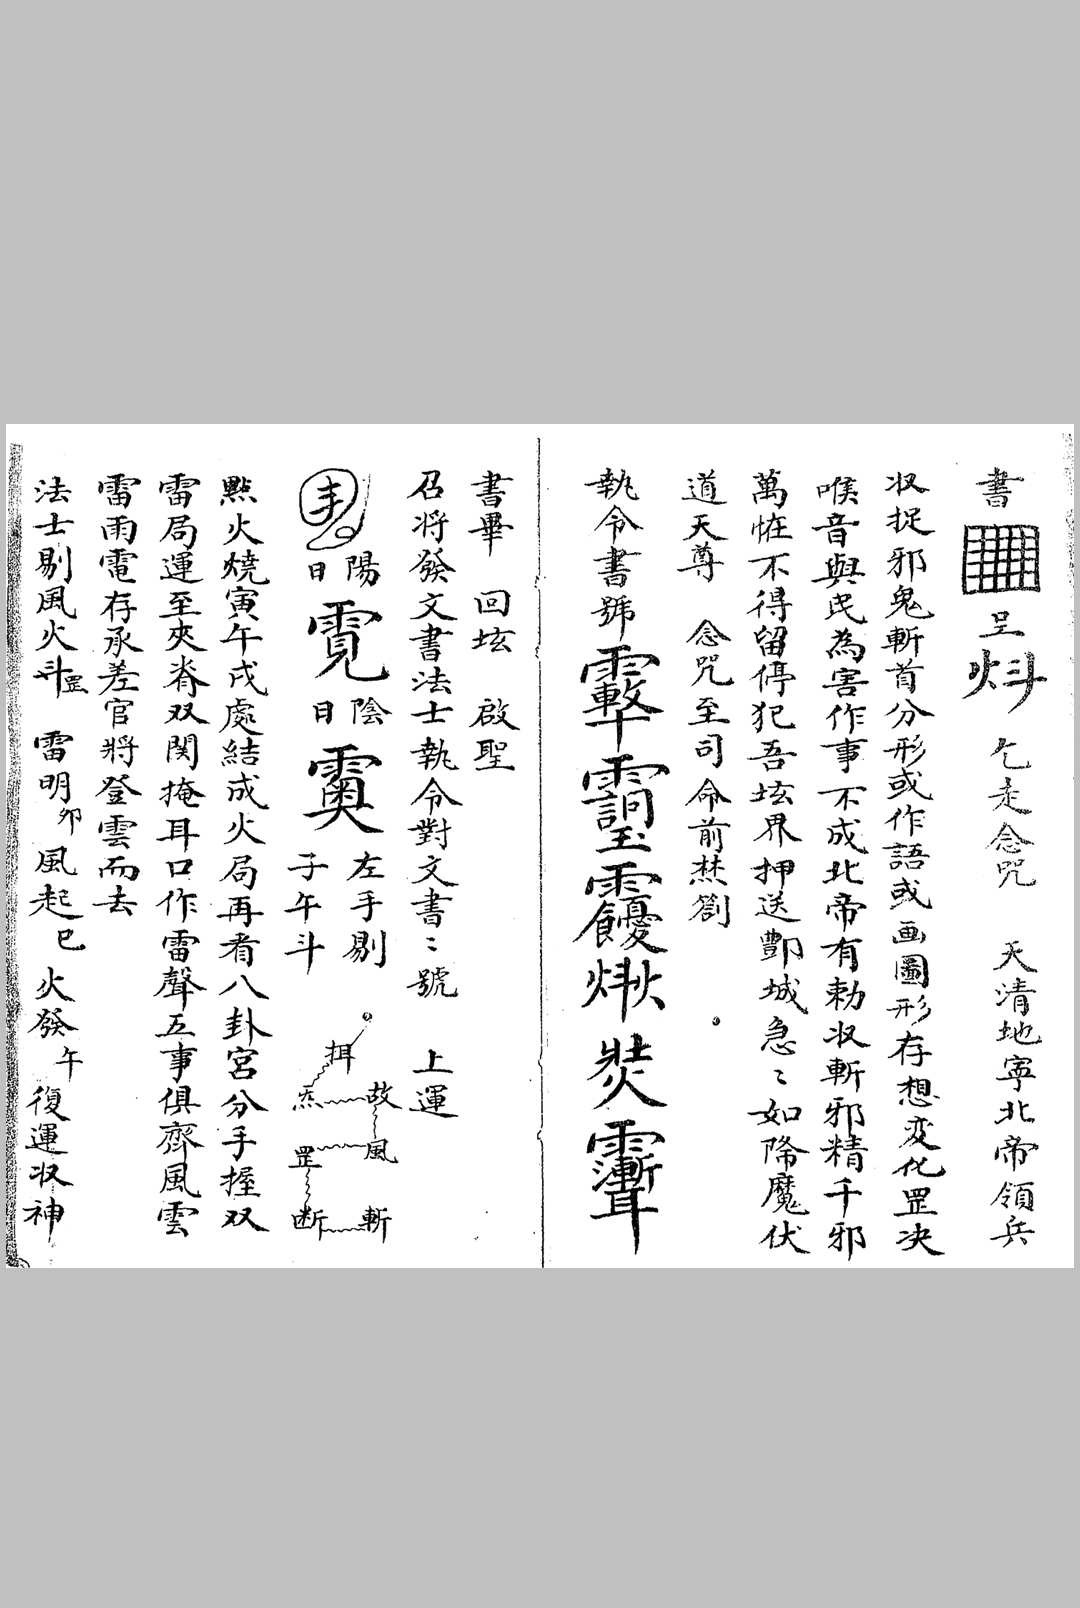 書 呈 㪵 乞走念咒 天清地寧北帝領兵
収捉邪鬼斬首分形或作語或画圖形存想変化罡决
喉音與民為害作事不成北帝有勅収斬邪精千邪
萬恠不得留停犯吾坛界押送酆城急〻如降魔伏
道天尊 念咒至司命前焚劄
執令書號
書畢 回坛 啟聖
召将發文書法士執令對文書〻號 上運
陽日 霓 陰日 左手剔 子午斗
挕 故 風 罡 断 斬
點火燒寅午戌處結成火局再看八卦宮分手握双
雷局運至夾脊双関掩耳口作雷聲五事俱齊風雲
雷雨電存承差官將登雲而去
法士剔風火斗罡 雷明卯 風起巳 火發午 復運収神